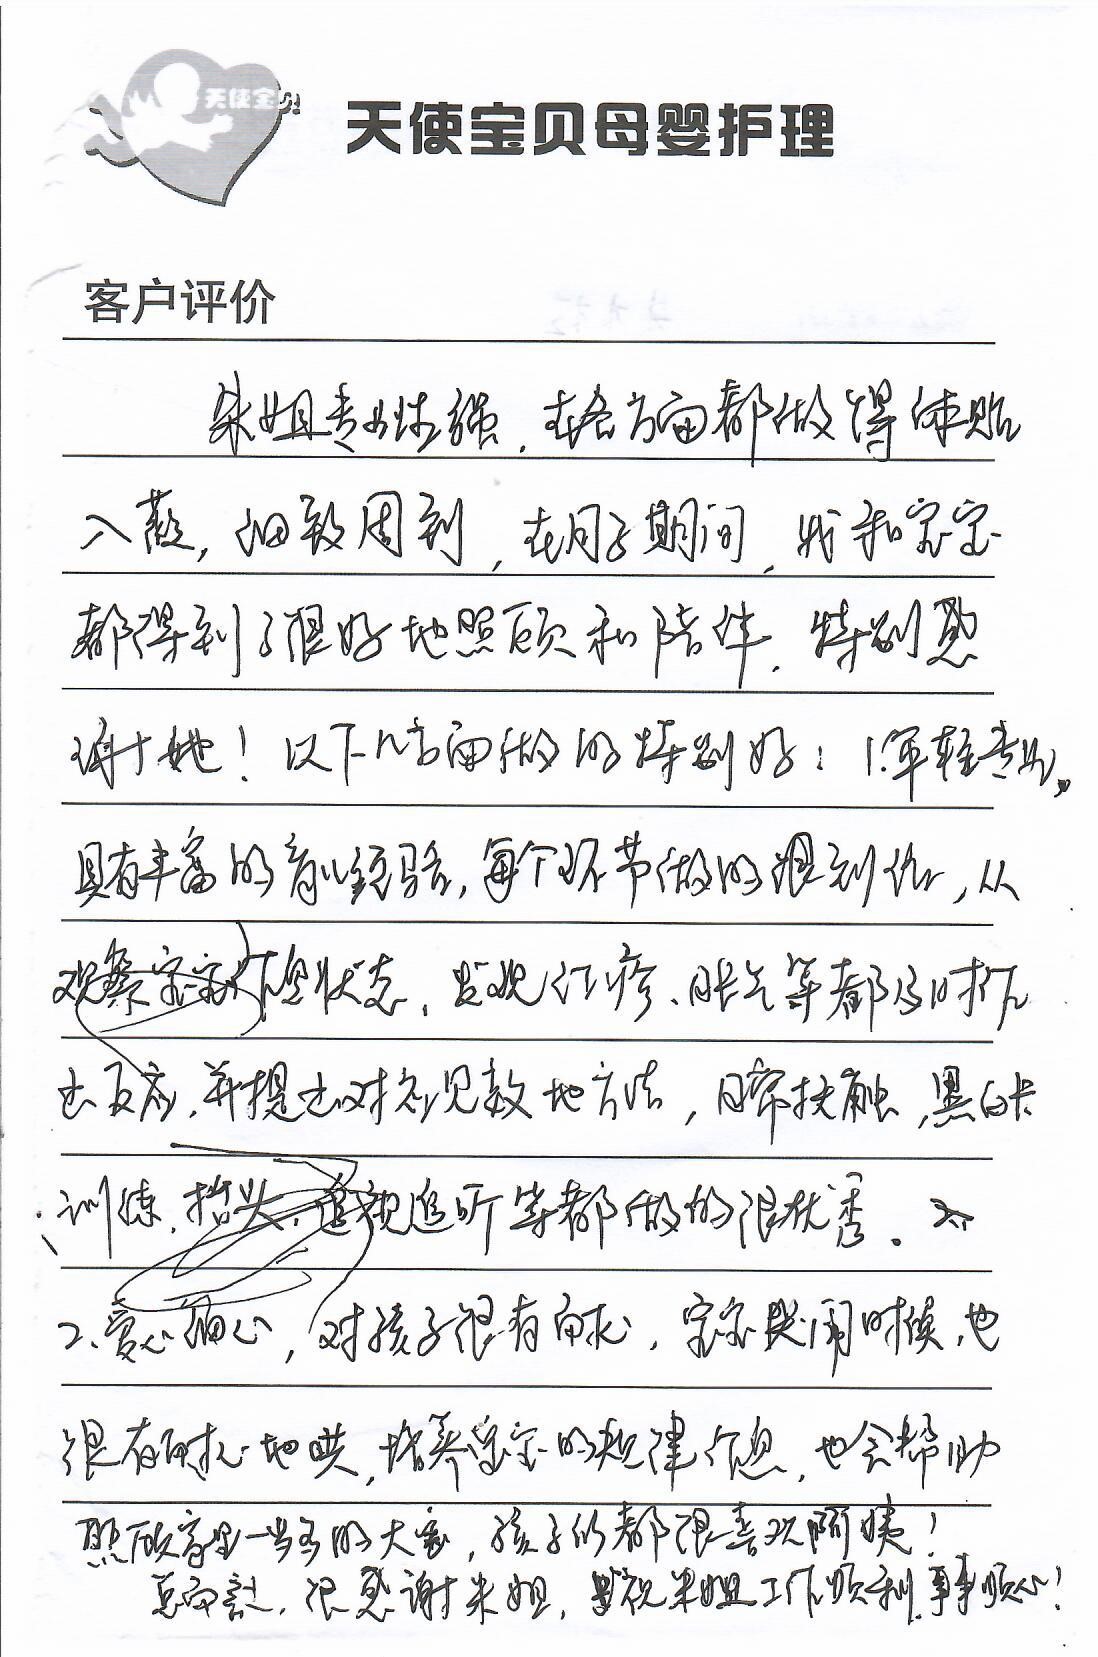 天使宝贝
天使宝贝母婴护理
客户评价
朱姐专业性强，在各方面都做得体贴
入微，细致周到，在月子期间，我和宝宝
都得到了很好地照顾和陪伴，特别感
谢她！以下几方面做的特别好：1.年轻专业，
具有丰富的育儿经验，每个环节做的很到位，从
观察宝宝作息状态，发现红疹、胀气等都及时作
出反应，并提出对应见效地方法，日常抚触，黑白卡
训练，抬头，追视追听等都做的很优秀。
2、爱心细心，对孩子很有耐心，宝宝哭闹时候，也
很有耐心地哄，培养宝宝的规律作息，也会帮助
照顾家里的大宝，孩子们都很喜欢阿姨！
总而言之，很感谢朱姐，祝朱姐工作顺利，事事顺心！